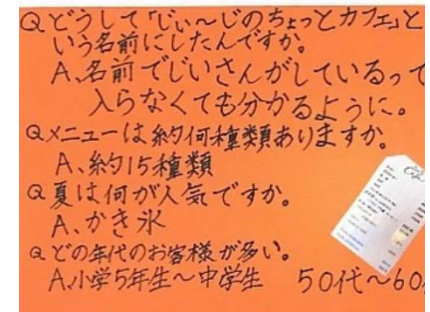 Qどうして「じぃ～じのちょっとカフェ」と
いう名前にしたんですか。
A、名前でじいさんがしているって
入らなくても分かるように。
Qメニューは約何種類ありますか。
A、約15種類
Q夏は何が人気ですか。
A、かき氷
Qどの年代のお客様が多い。
A、小学5年生～中学生 50代～60